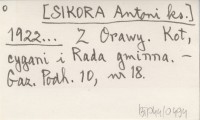 [SIKORA Antoni ks.]
1922... Z Orawy. Kot,
cygani i Rada gminna. —
Gaz. Podh. 10, nr 18.